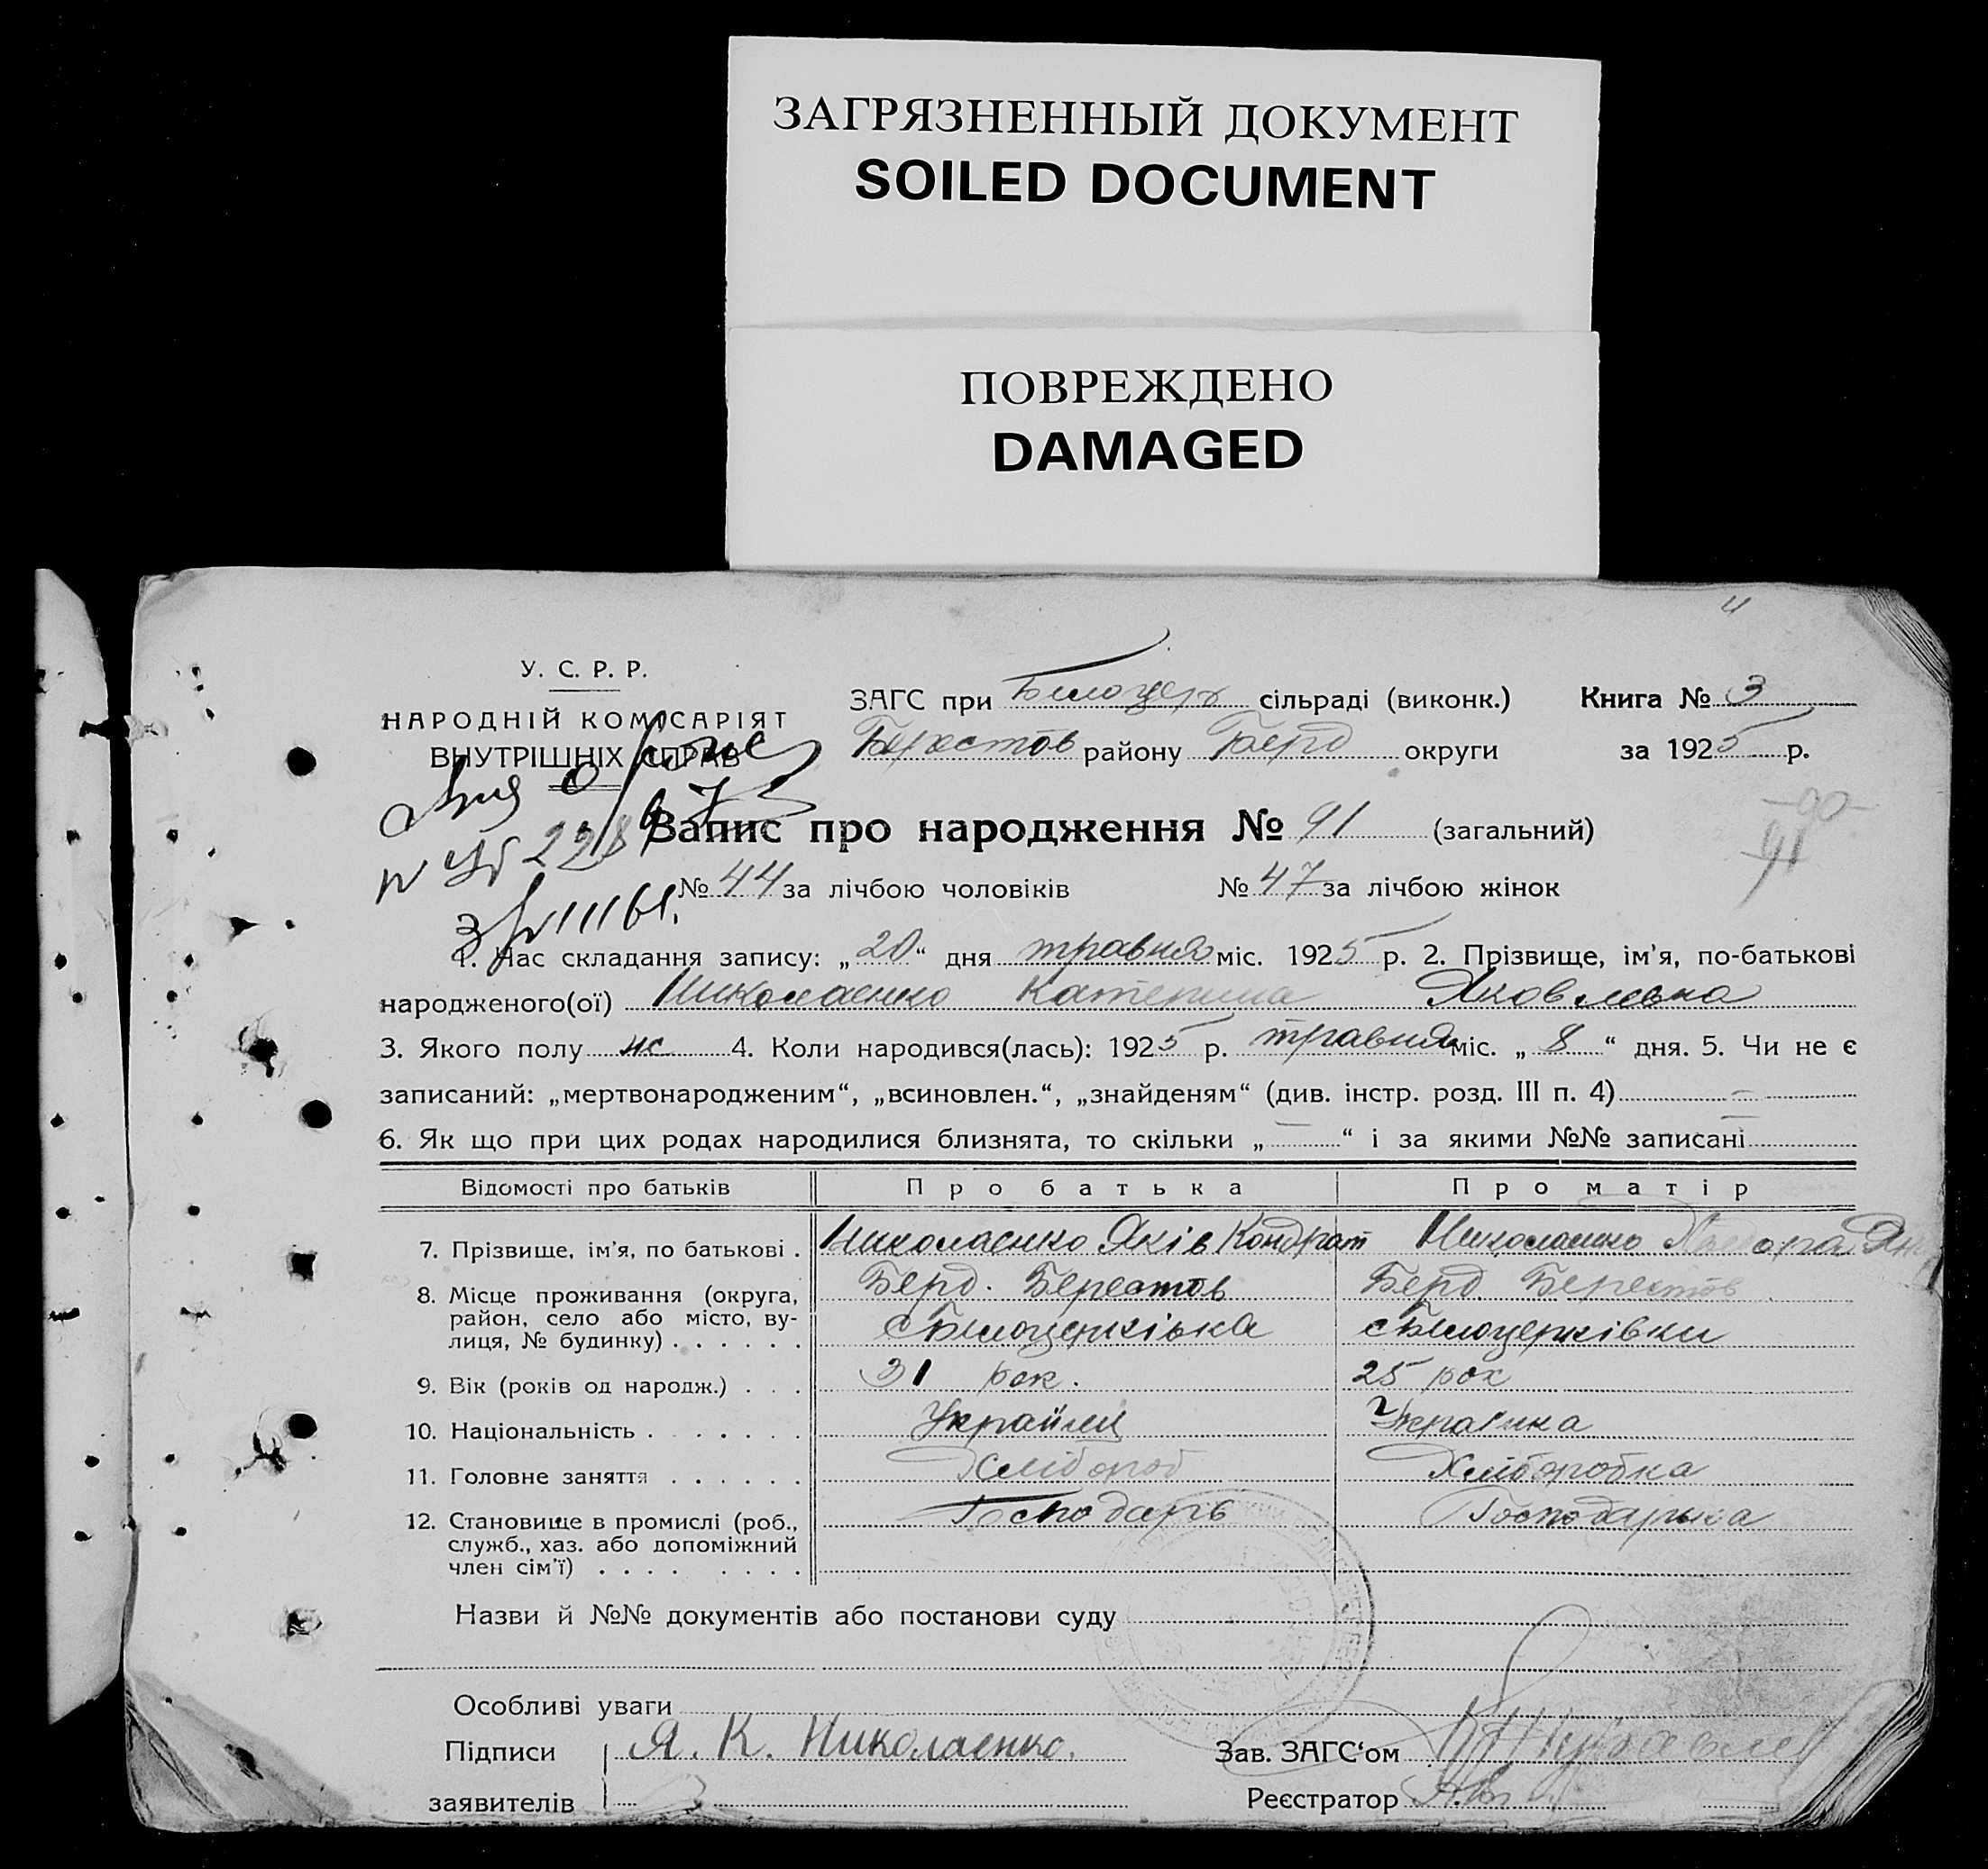 ЗАГРЯЗНЕННЫЙ ДОКУМЕНТ
SOILED DOCUMENT
ПОВРЕЖДЕНО
DAMAGED
У. С. Р. Р.
НАРОДНІЙ КОМІСАРІЯТ
ВНУТРІШНІХ СПРАВ
ЗАГС при Білоцерк сільраді (виконк.) Книга № 3
Берестов району Берд округи за 1925 р.
Запис про народження № 91 (загальний)
№ 44 за лічбою чоловіків № 47 за лічбою жінок
1. Час складання запису: „20“ дня травня міс. 1925 р. 2. Прізвище, ім’я, по-батькові
народженого(ої) Николаенко Катерина Яковлевна
3. Якого полу ж 4. Коли народився(лась): 1925 р. травня міс. „8“ дня. 5. Чи не є
записаний: „мертвонародженим“, „всиновлен.“, „знайденям“ (див. інстр. розд. III п. 4) —
6. Як що при цих родах народилися близнята, то скільки „—“ і за якими №№ записані —
Відомості про батьків Про батька Про матір
7. Прізвище, ім’я, по батькові . Николаенко Яків Кондрат Николаенко
8. Місце проживання (округа, Берд. Берестов Берд. Берестов
район, село або місто, ву-
лиця, № будинку) . . . . . . с Білоцерківка с Білоцерківки
9. Вік (років од народж.) . . . 31 рок. 25 рок
10. Національність . . . . . . . Українец Українка
11. Головне заняття . . . . . . Хлібороб Хліборобка
12. Становище в промислі (роб., Господарь Господарька
служб., хаз. або допоміжний
член сім’ї) . . . . . . . .
Назви й №№ документів або постанови суду
Особливі уваги
Підписи Я. К. Николаенко. Зав. ЗАГС‘ом
заявителів Реєстратор